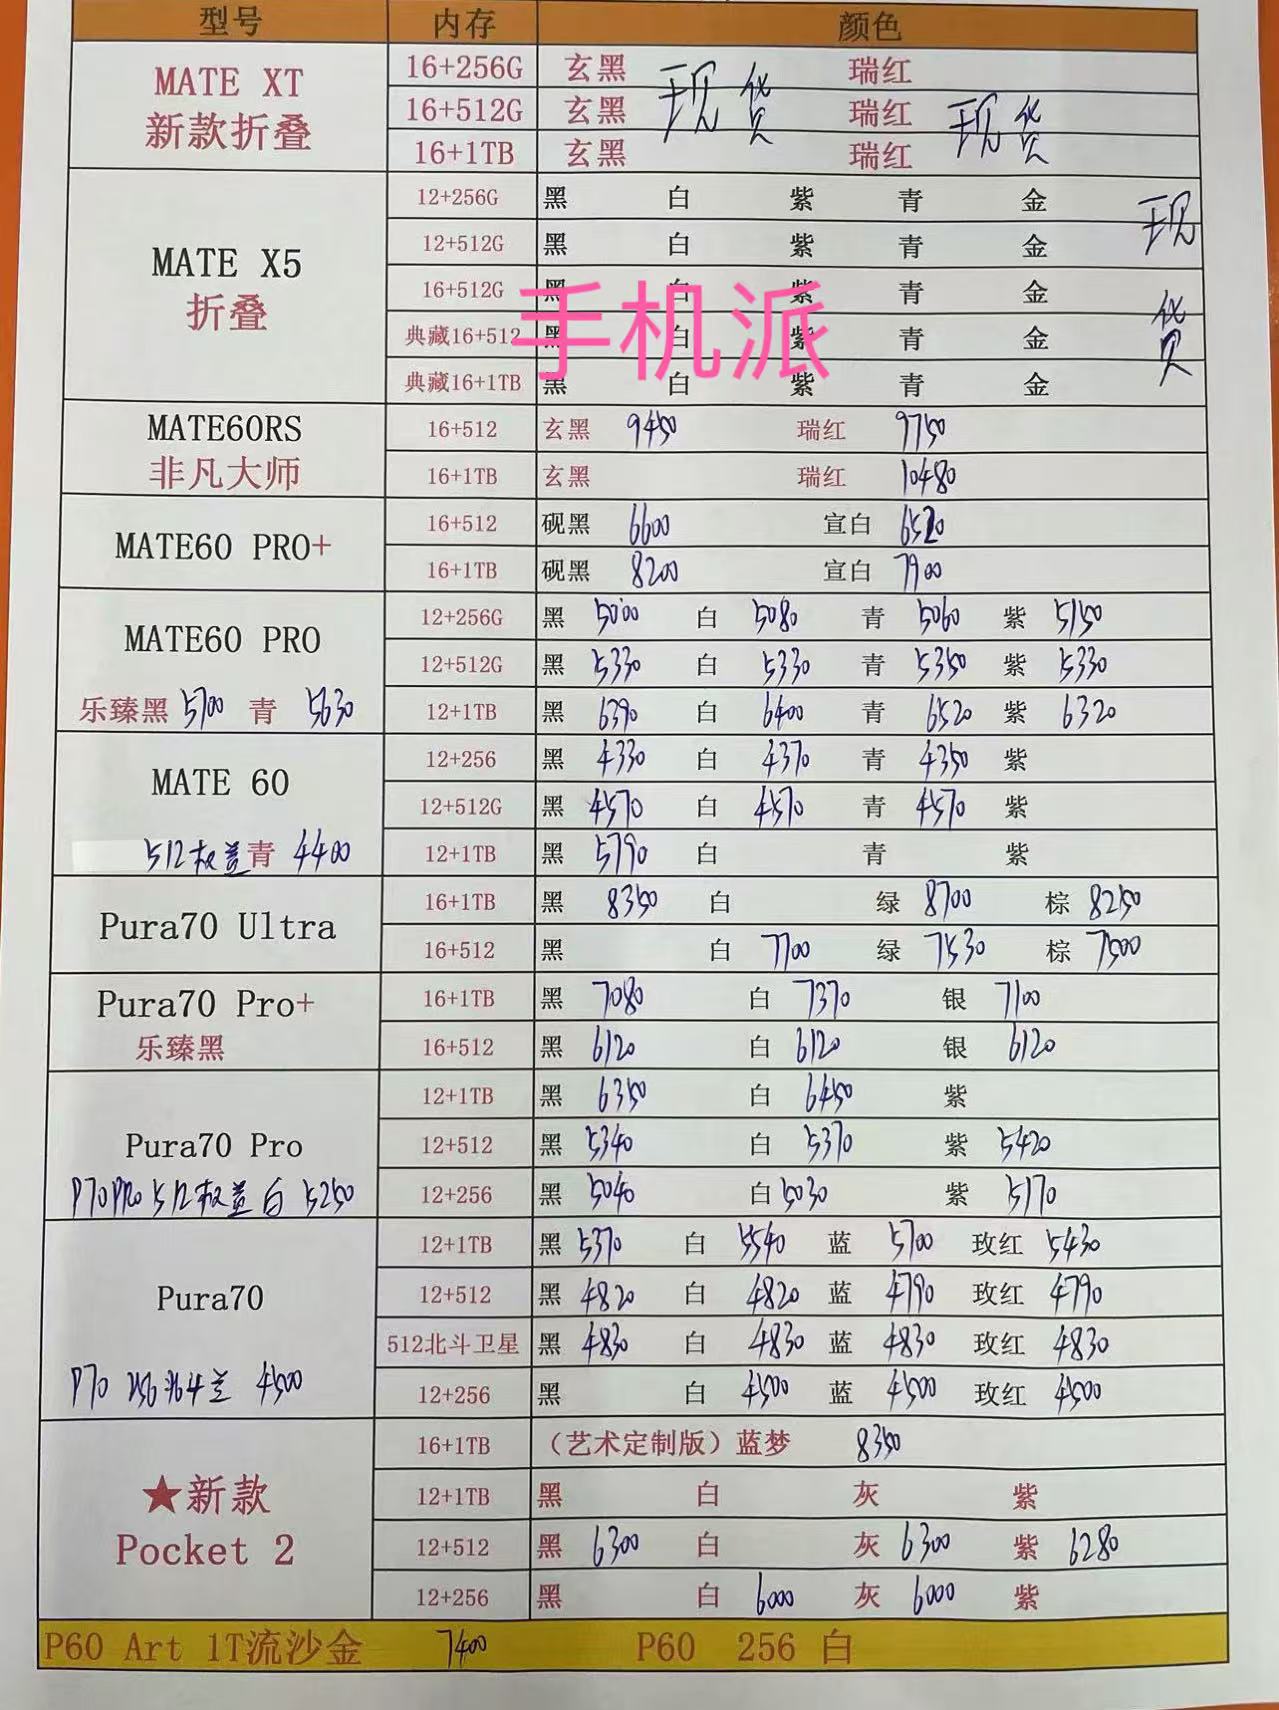 型号 内存 颜色
MATE XT 新款折叠
16+256G 玄黑 瑞红
16+512G 玄黑 现货 瑞红 现货
16+1TB 玄黑 瑞红
MATE X5 折叠
12+256G 黑 白 紫 青 金
12+512G 黑 白 紫 青 金 现货
16+512G 黑 白 紫 青 金
手机派
典藏16+512 黑 白 紫 青 金
典藏16+1TB 黑 白 紫 青 金
MATE60RS 非凡大师
16+512 玄黑 9450 瑞红 9750
16+1TB 玄黑 瑞红 10480
MATE60 PRO+
16+512 砚黑 6600 宣白 6520
16+1TB 砚黑 8200 宣白 7900
MATE60 PRO
12+256G 黑 5000 白 5080 青 5060 紫 5150
12+512G 黑 5330 白 5330 青 5350 紫 5330
乐臻黑 5700 青 5630
12+1TB 黑 6390 白 6400 青 6520 紫 6320
MATE 60
12+256 黑 4330 白 4370 青 4350 紫
12+512G 黑 4570 白 4570 青 4570 紫
512 青 4400
12+1TB 黑 5790 白 青 紫
Pura70 Ultra
16+1TB 黑 8350 白 绿 8700 棕 8250
16+512 黑 白 7700 绿 7530 棕 7500
Pura70 Pro+
16+1TB 黑 7080 白 7370 银 7100
乐臻黑
16+512 黑 6120 白 6120 银 6120
Pura70 Pro
12+1TB 黑 6350 白 6450 紫
12+512 黑 5340 白 5370 紫 5420
P70PRO 512 白 5250
12+256 黑 5040 白 5030 紫 5170
Pura70
12+1TB 黑 5370 白 5540 蓝 5700 玫红 5430
12+512 黑 4820 白 4820 蓝 4790 玫红 4790
512北斗卫星 黑 4830 白 4830 蓝 4830 玫红 4830
P70 256 4500
12+256 黑 白 4500 蓝 4500 玫红 4500
★新款 Pocket 2
16+1TB （艺术定制版）蓝梦 8350
12+1TB 黑 白 灰 紫
12+512 黑 6300 白 灰 6300 紫 6280
12+256 黑 白 6000 灰 6000 紫
P60 Art 1T流沙金 7400 P60 256 白